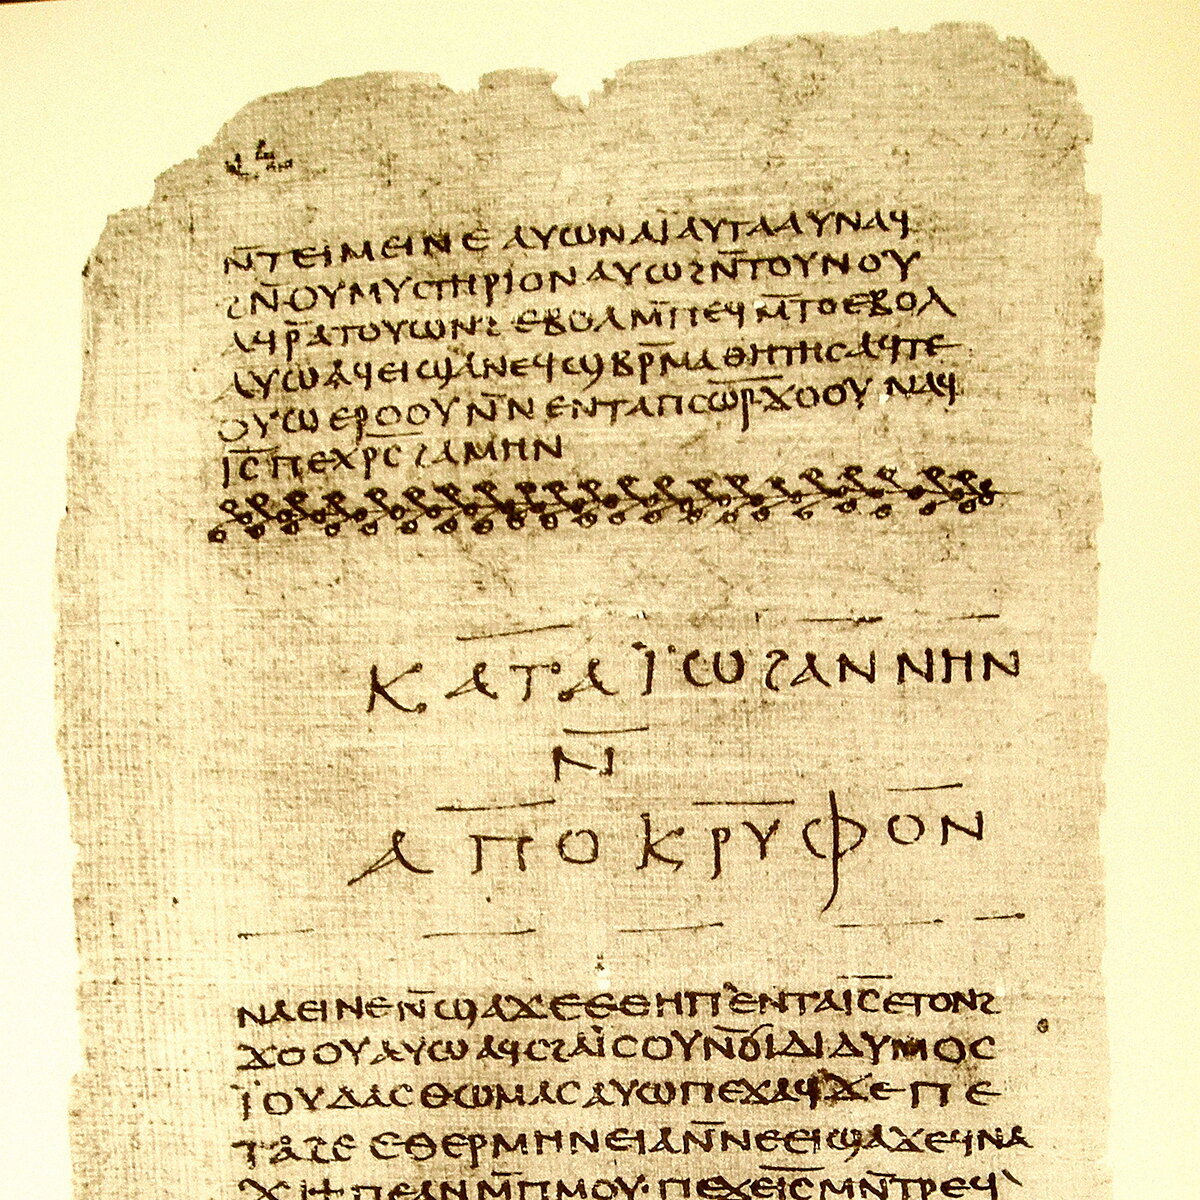 ⲛ̄ⲧⲉⲓⲙⲉⲓⲛⲉ ⲁⲩⲱ ⲛⲁⲓ̈ ⲁⲩⲧⲁⲁⲩ ⲛⲁϥ
ϩⲛ̄ ⲟⲩⲙⲩⲥⲧⲏⲣⲓⲟⲛ ⲁⲩⲱ ϩⲛ̄ ⲧⲟⲩⲛⲟⲩ
ⲁϥⲣ̄ⲁⲧⲟⲩⲱⲛϩ ⲉⲃⲟⲗ ⲙ̄ⲡⲉϥⲙ̄ⲧⲟ ⲉⲃⲟⲗ
ⲁⲩⲱ ⲁϥⲉⲓ ϣⲁ ⲛⲉϥϣⲃⲣ̄ⲙⲁⲑⲏⲧⲏⲥ ⲁϥⲧⲉ
ⲟⲩⲱ ⲉⲣⲟⲟⲩ ⲛ̄ⲛⲉⲛⲧⲁ ⲡⲥⲱ̅ⲣ̅ ϫⲟⲟⲩ ⲛⲁϥ
ⲓ̅ⲥ̅ ⲡⲉⲭⲣ̅ⲥ̅ ϩⲁⲙⲏⲛ
ⲕⲁⲧⲁ ⲓ̈ⲱϩⲁⲛⲛⲏⲛ
ⲛ̄
ⲁⲡⲟⲕⲣⲩⲫⲟⲛ
ⲛⲁⲉⲓ ⲛⲉ ⲛ̄ϣⲁϫⲉ ⲉⲑⲏⲡ ⲉⲛⲧⲁ ⲓ̅ⲥ̅ ⲉⲧⲟⲛϩ
ϫⲟⲟⲩ ⲁⲩⲱ ⲁϥⲥϩⲁⲓ̈ⲥⲟⲩ ⲛ̄ϭⲓ ⲇⲓⲇⲩⲙⲟⲥ
ⲓ̈ⲟⲩⲇⲁⲥ ⲑⲱⲙⲁⲥ ⲁⲩⲱ ⲡⲉϫⲁϥ ϫⲉ ⲡⲉ
ⲧⲁϩⲉ ⲉⲑⲉⲣⲙⲏⲛⲉⲓⲁ ⲛ̄ⲛⲉⲉⲓϣⲁϫⲉ ϥⲛⲁ
ϫⲓ ϯⲡⲉ ⲁⲛ ⲙ̄ⲡⲙⲟⲩ· ⲡⲉϫⲉ ⲓ̅ⲥ̅ ⲙⲛ̄ⲧⲣⲉϥ